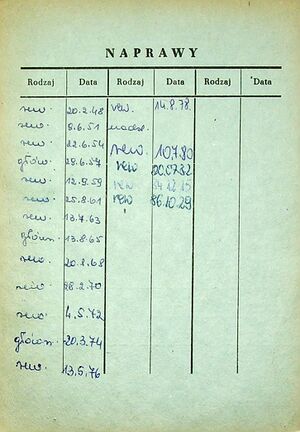 NAPRAWY
Rodzaj Data Rodzaj Data Rodzaj Data
rew. 20.2.48 rew. 14.8.78.
rew. 9.6.51
rew. 22.6.54 rew. 10.7.80
główn. 29.6.57 rew
rew. 12.9.59 rew 84.12.15
rew. 25.8.61 rew 86.10.29
rew. 13.7.63
główn. 13.8.65
rew. 20.1.68
rew. 28.2.70
rew. 4.5.72
główn. 20.3.74
rew. 13.5.76